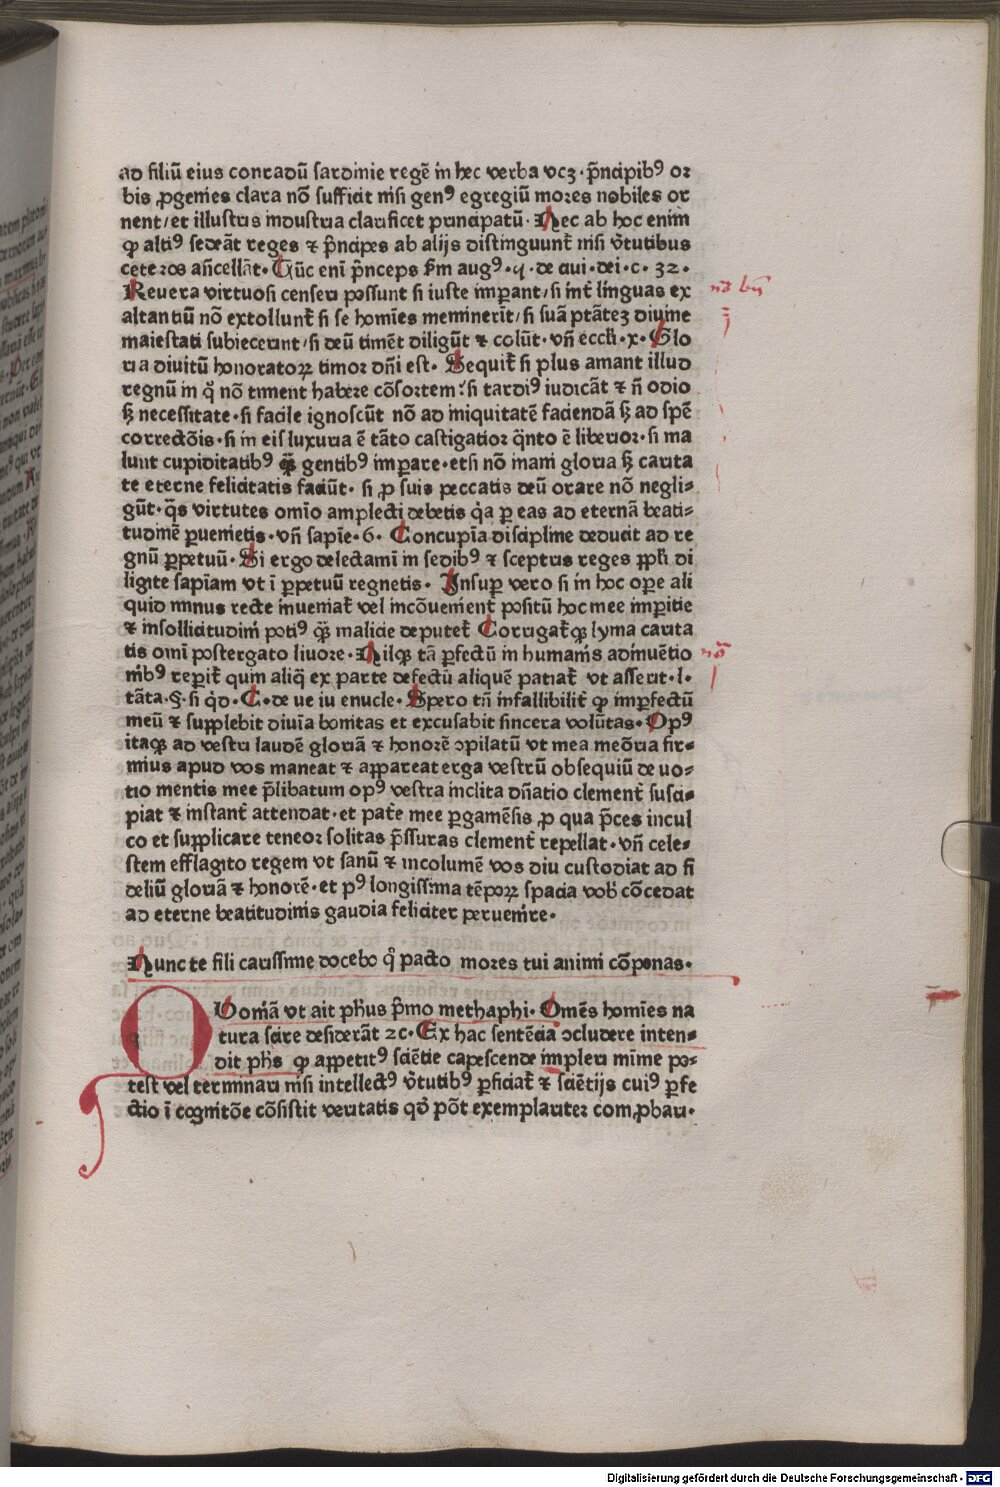 ad filiū eius conradū sardinie regē in hec verba vcꝫ · p̄ncipibꝰ or
bis ꝓgenies clara nō sufficit nisi genꝰ egregiū mores nobiles or
nent / et illustris industria clarificet principatū · Nec ab hoc enim
ꝙ altiꝰ sedeāt reges ⁊ p̄ncipes ab alijs distinguunt̄ nisi v̄tutibus
ceteros an̄cellāt · Tūc eni p̄nceps s̄m augꝰ · q · de ciui · dei · c · 32 ·
Revera virtuosi censeri possunt si iuste imperant / si int̄ linguas ex
altantiū nō extollunt̄ si se homīes meminerīt / si suā ptāteꝫ diuine
maiestati subiecerint / si deū timēt diligūt ⁊ colūt · vn̄ eccli · x · Glo
ria diuitū honoratoꝝ timor dn̄i est · Sequit̄ si plus amant illud
regnū in q̄ nō timent habere cōsortem : si tardiꝰ iudicāt ⁊ n̄ odio
sꝫ necessitate · si facile ignoscūt nō ad iniquitatē faciendā sꝫ ad spē
correctōis · si in eis luxuria ē tāto castigatior q̄nto ē liberior · si ma
lunt cupiditatibꝰ qꝫ gentibꝰ imꝑare · etsi nō inani gloria sꝫ carita
te eterne felicitatis faciūt · si ꝓ suis peccatis deū orare nō negli⸗
gūt · q̄s virtutes omīo amplecti debetis q̄a ꝑ eas ad eternā beati⸗
tudinē ꝑuenietis · vn̄ sapīe · 6 · Concupīa discipline deducit ad re
gnū ꝑpetuū · Si ergo delectamī in sedibꝰ ⁊ sceptris reges ppl̄i di
ligite sapīam vt ī ꝑpetuū regnetis · Insuꝑ vero si in hoc oꝑe ali
quid minus recte inueniat̄ vel incōuenient̄ positū hoc mee imꝑitie
⁊ insollicitudini potiꝰ qꝫ malicie deputet̄ Corrigat̄qꝫ lyma carita
tis omī postergato liuore · Nilqꝫ tā ꝑfectū in humanis adinuētio
nibꝰ reperit̄ quin aliq̄ ex parte defectū aliquē patiat̄ vt asserit · l ·
tāta · § · si q̄d · C · de ve iu enucle · Spero tn̄ infallibilit̄ ꝙ imꝑfectū
meū ⁊ supplebit diuīa bonitas et excusabit sincera volūtas · Opꝰ
itaqꝫ ad vestri laudē gloriā ⁊ honorē ɔpilatū vt mea meōria fir⸗
mius apud vos maneat ⁊ appareat erga vestrū obsequiū de uo⸗
tio mentis mee p̄libatum opꝰ vestra inclita dn̄atio clement̄ susci⸗
piat ⁊ instant̄ attendat · et pat̄e mee ꝑgamēsis ꝓ qua p̄ces incul
co et supplicare teneor solitas p̄ssuras clement̄ repellat · vn̄ cele⸗
stem efflagito regem vt sanū ⁊ incolumē vos diu custodiat ad fi
deliū gloriā ⁊ honorē · et pꝰ longissima tēpoꝝ spacia vob̄ cōcedat
ad eterne beatitudinis gaudia feliciter peruenire ·
Nunc te fili carissime docebo q̄ pacto mores tui animi cōponas ·
QUoniā vt ait ph̄us p̄mo methaphi · Omēs homīes na
tura scire desiderāt ⁊c · Ex hac sentēcia ɔcludere inten⸗
dit ph̄s ꝙ appetitꝰ sciētie capescende impleri mīme po⸗
test vel terminari nisi intellectꝰ v̄tutibꝰ ꝑficiat̄ ⁊ sciētijs cuiꝰ ꝑfe
ctio ī cognitōe cōsistit veritatis qd̄ pōt exemplariter comꝓbari ·
Digitalisierung gefördert durch die Deutsche Forschungsgemeinschaft · DFG